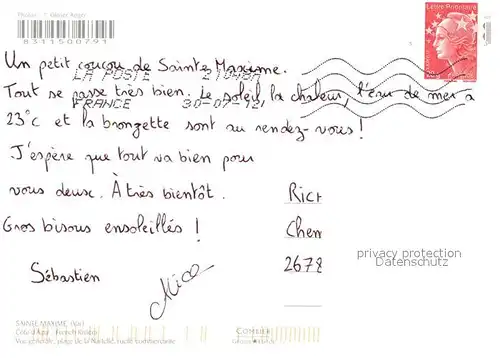 8311500791
Lettre Prioritaire
Un petit coucou de Sainte Maxime.
LA POSTE 21048A
Tout se passe très bien. Le soleil la chaleur, l'eau de mer à
FRANCE 30-07-12
23°c et la bronzette sont au rendez-vous !
J'espère que tout va bien pour
vous deux. À très bientôt.
Gros bisous ensoleillés !
Sébastien
RICH
Chem
2678
privacy protection
Datenschutz
SAINTE-MAXIME (Var)
Côte d'Azur - French Riviera
Vue générale, plage de la Nartelle, ruelle commerçante
COMBIER